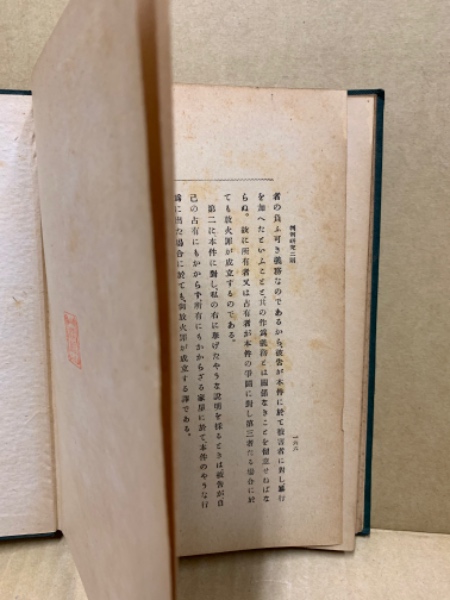 判例研究二期
一六八
者の負ふ可き義務なのであるから、被告が本件に於て被害者に對し暴行
を加へたといふことと其の作爲義務とは關係なきことを留意せねばな
らぬ。故に所有者又は占有者が本件の爭鬪に對し第三者たる場合に於
ても放火罪が成立するのである。
第二は本件に對し、私の右に擧げたやうな說明を採るときは被告が自
己の占有にもかからず所有にもかからざる家屋に於て、本件のやうな行
爲に出た場合に於ても、尙放火罪が成立する譯である。